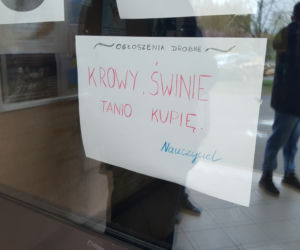 ~ OGŁOSZENIA DROBNE ~
KROWY, ŚWINIE
TANIO KUPIĘ.
Nauczyciel